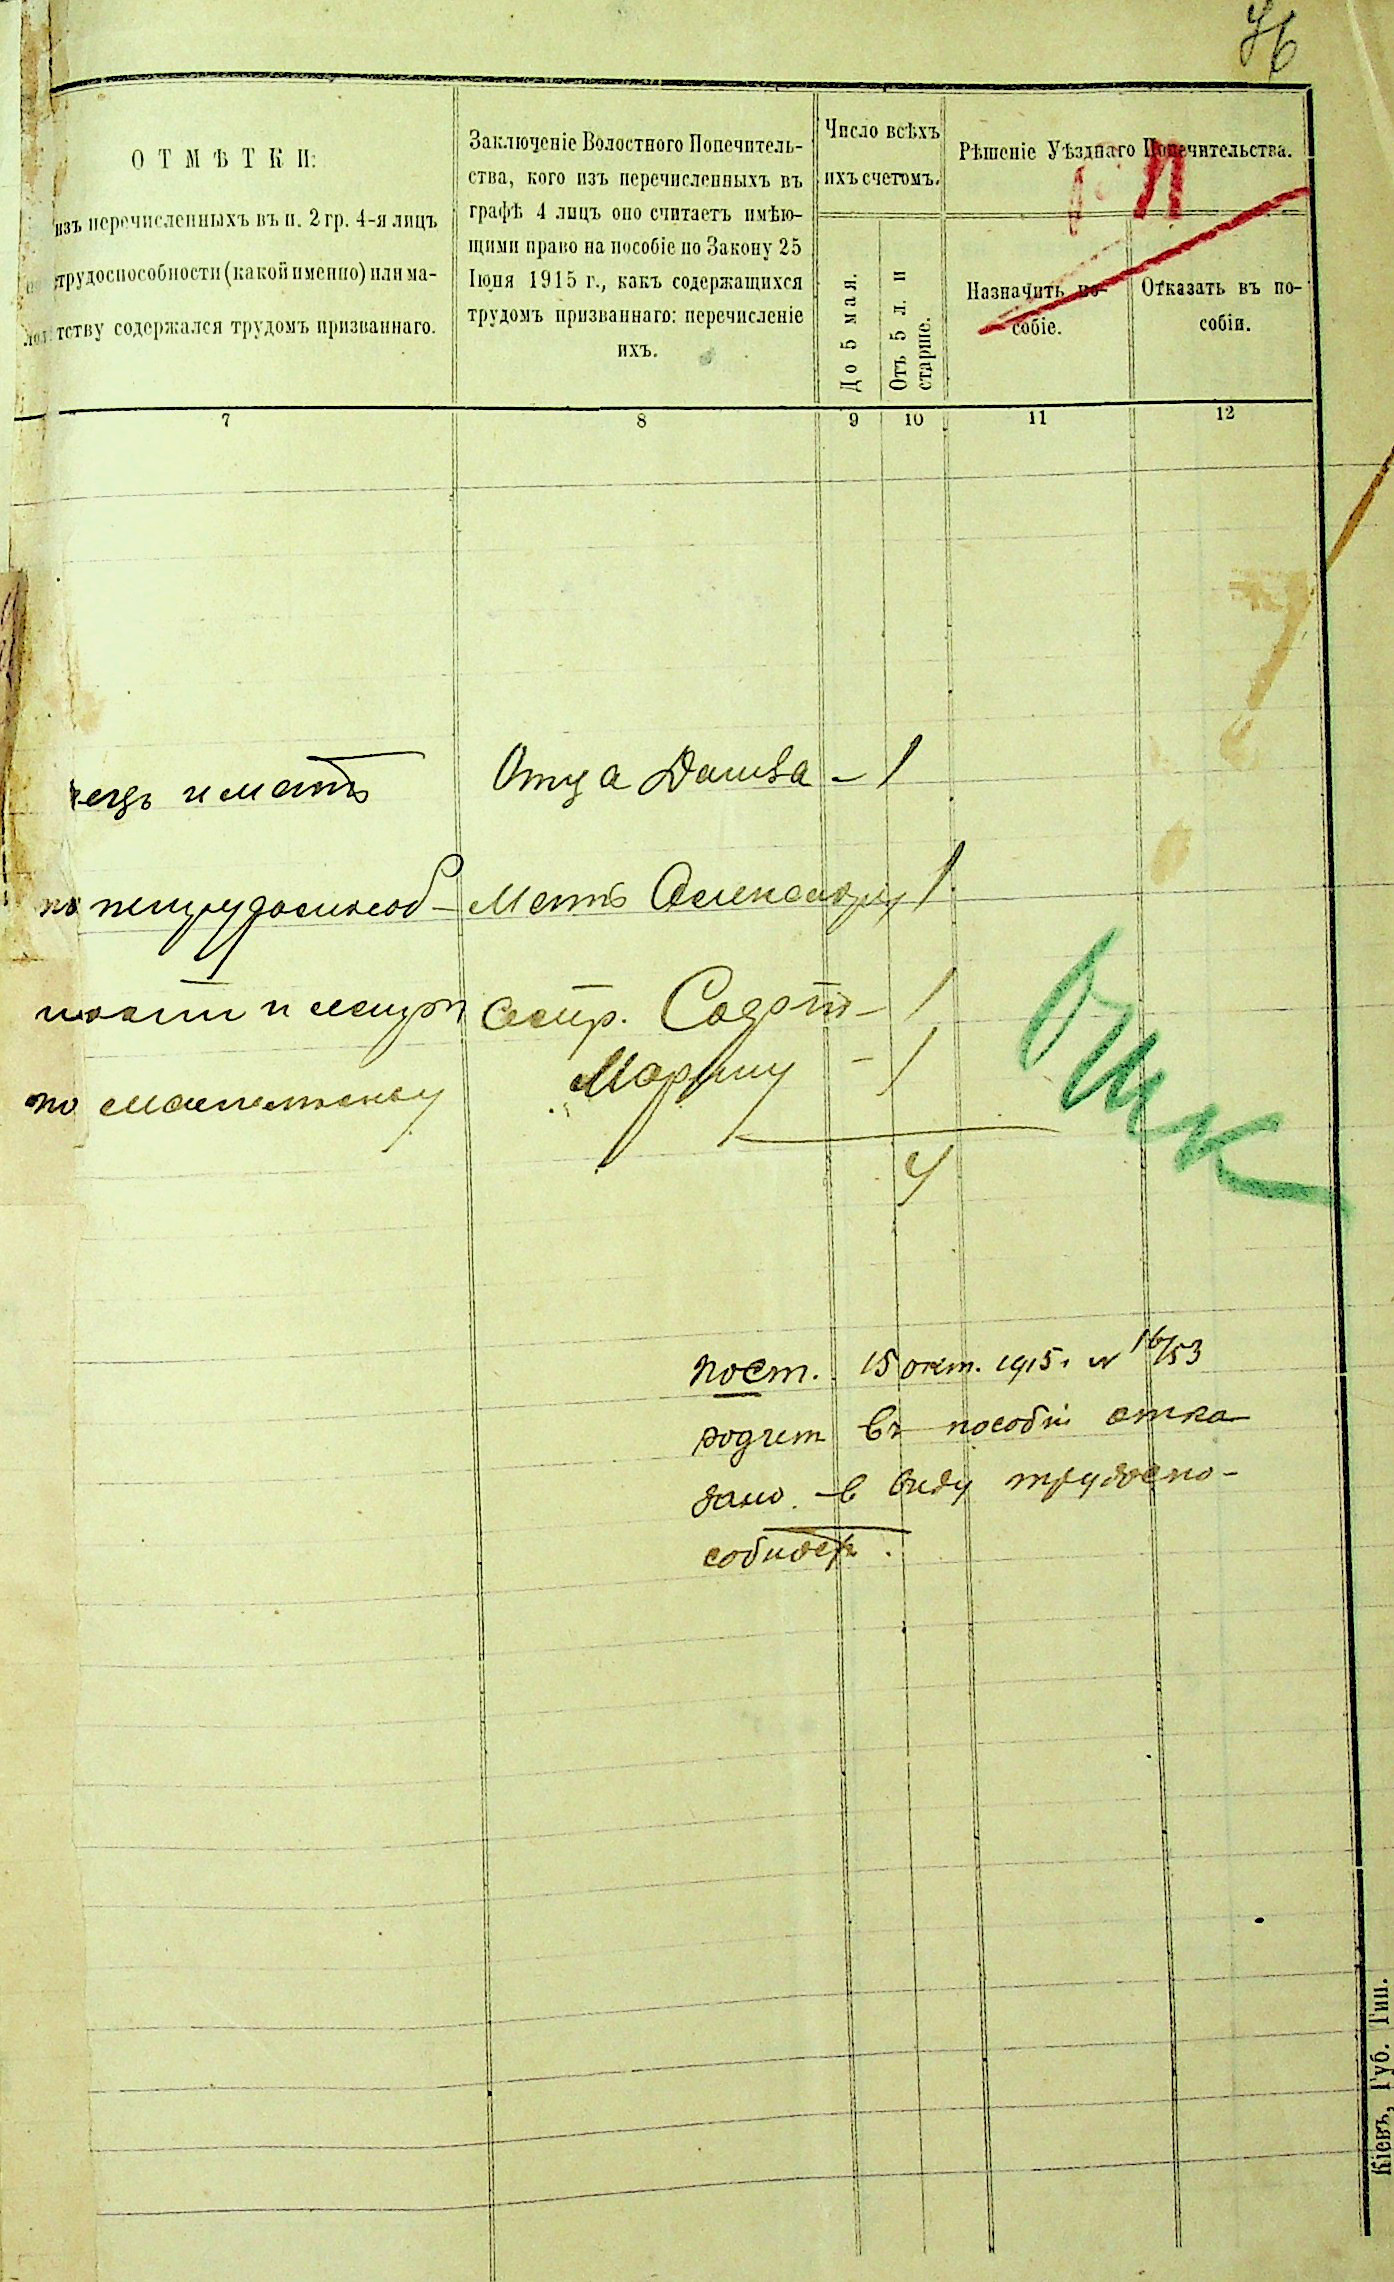 76
ОТМѢТКИ:
изъ перечисленныхъ въ п. 2 гр. 4-я лицъ
трудоспособности (какой именно) или ма-
тству содержался трудомъ призваннаго.
Заключеніе Волостного Попечитель-
ства, кого изъ перечисленныхъ въ
графѣ 4 лицъ оно считаетъ имѣю-
щими право на пособіе по Закону 25
Іюня 1915 г., какъ содержащихся
трудомъ призваннаго: перечисленіе
ихъ.
Число всѣхъ
ихъ счетомъ.
До 5 мая.
Отъ 5 л. и
старше.
Рѣшеніе Уѣзднаго Попечительства.
Назначить по-
собіе.
Отказать въ по-
собіи.
7 8 9 10 11 12
и мать
Отца Данила – 1
по нетрудоспособ-
Мать Александру 1
ности и сестры
Сестр. – 1
Марину – 1
по
4
Отк
Пост. 15 окт. 1915 г. № 16/53
родит въ пособіи отка-
зано в виду трудоспо-
собност.
Кіевъ, Губ. Тип.